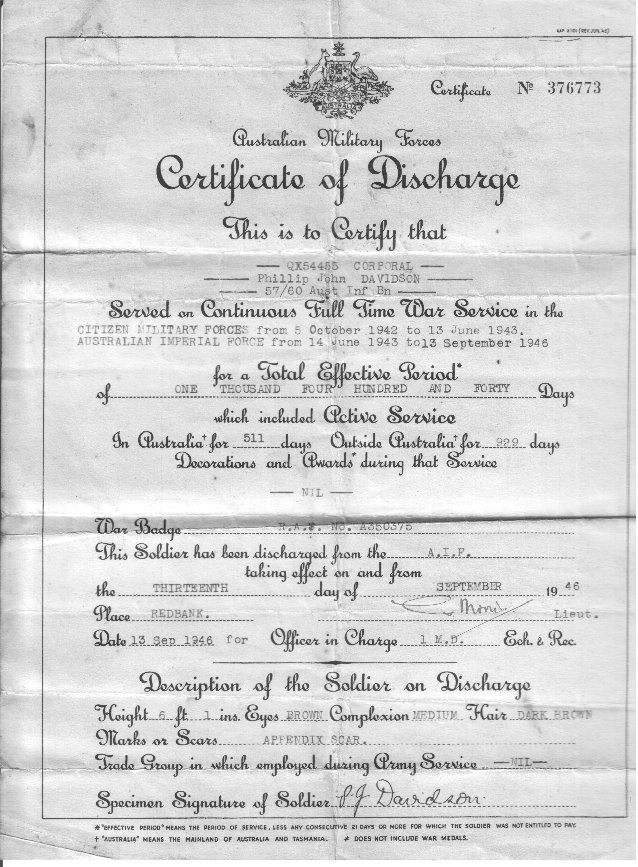 AAF A101 (REV.JUN.46)
AUSTRALIA
Certificate Nº 376773
Australian Military Forces
Certificate of Discharge
This is to Certify that
QX54455 CORPORAL
Phillip John DAVIDSON
57/60 Aust Inf Bn
Served on Continuous Full Time War Service in the
CITIZEN MILITARY FORCES from 5 October 1942 to 13 June 1943.
AUSTRALIAN IMPERIAL FORCE from 14 June 1943 to13 September 1946
for a Total Effective Period*
of ONE THOUSAND FOUR HUNDRED AND FORTY Days
which included Active Service
In Australia† for 511 days Outside Australia† for 929 days
Decorations and Awards≠ during that Service
— NIL —
War Badge R.A.S. No. A350375
This Soldier has been discharged from the A.I.F.
taking effect on and from
the THIRTEENTH day of SEPTEMBER 1946
Place REDBANK. Lieut.
Date 13 Sep 1946 for Officer in Charge 1 M.D. Ech. & Rec.
Description of the Soldier on Discharge
Height 6 ft 1 ins. Eyes BROWN Complexion MEDIUM Hair DARK BROWN
Marks or Scars APPENDIX SCAR.
Trade Group in which employed during Army Service —NIL—
Specimen Signature of Soldier P.J Davidson
* "EFFECTIVE PERIOD" MEANS THE PERIOD OF SERVICE, LESS ANY CONSECUTIVE 21 DAYS OR MORE FOR WHICH THE SOLDIER WAS NOT ENTITLED TO PAY.
† "AUSTRALIA" MEANS THE MAINLAND OF AUSTRALIA AND TASMANIA. ≠ DOES NOT INCLUDE WAR MEDALS.